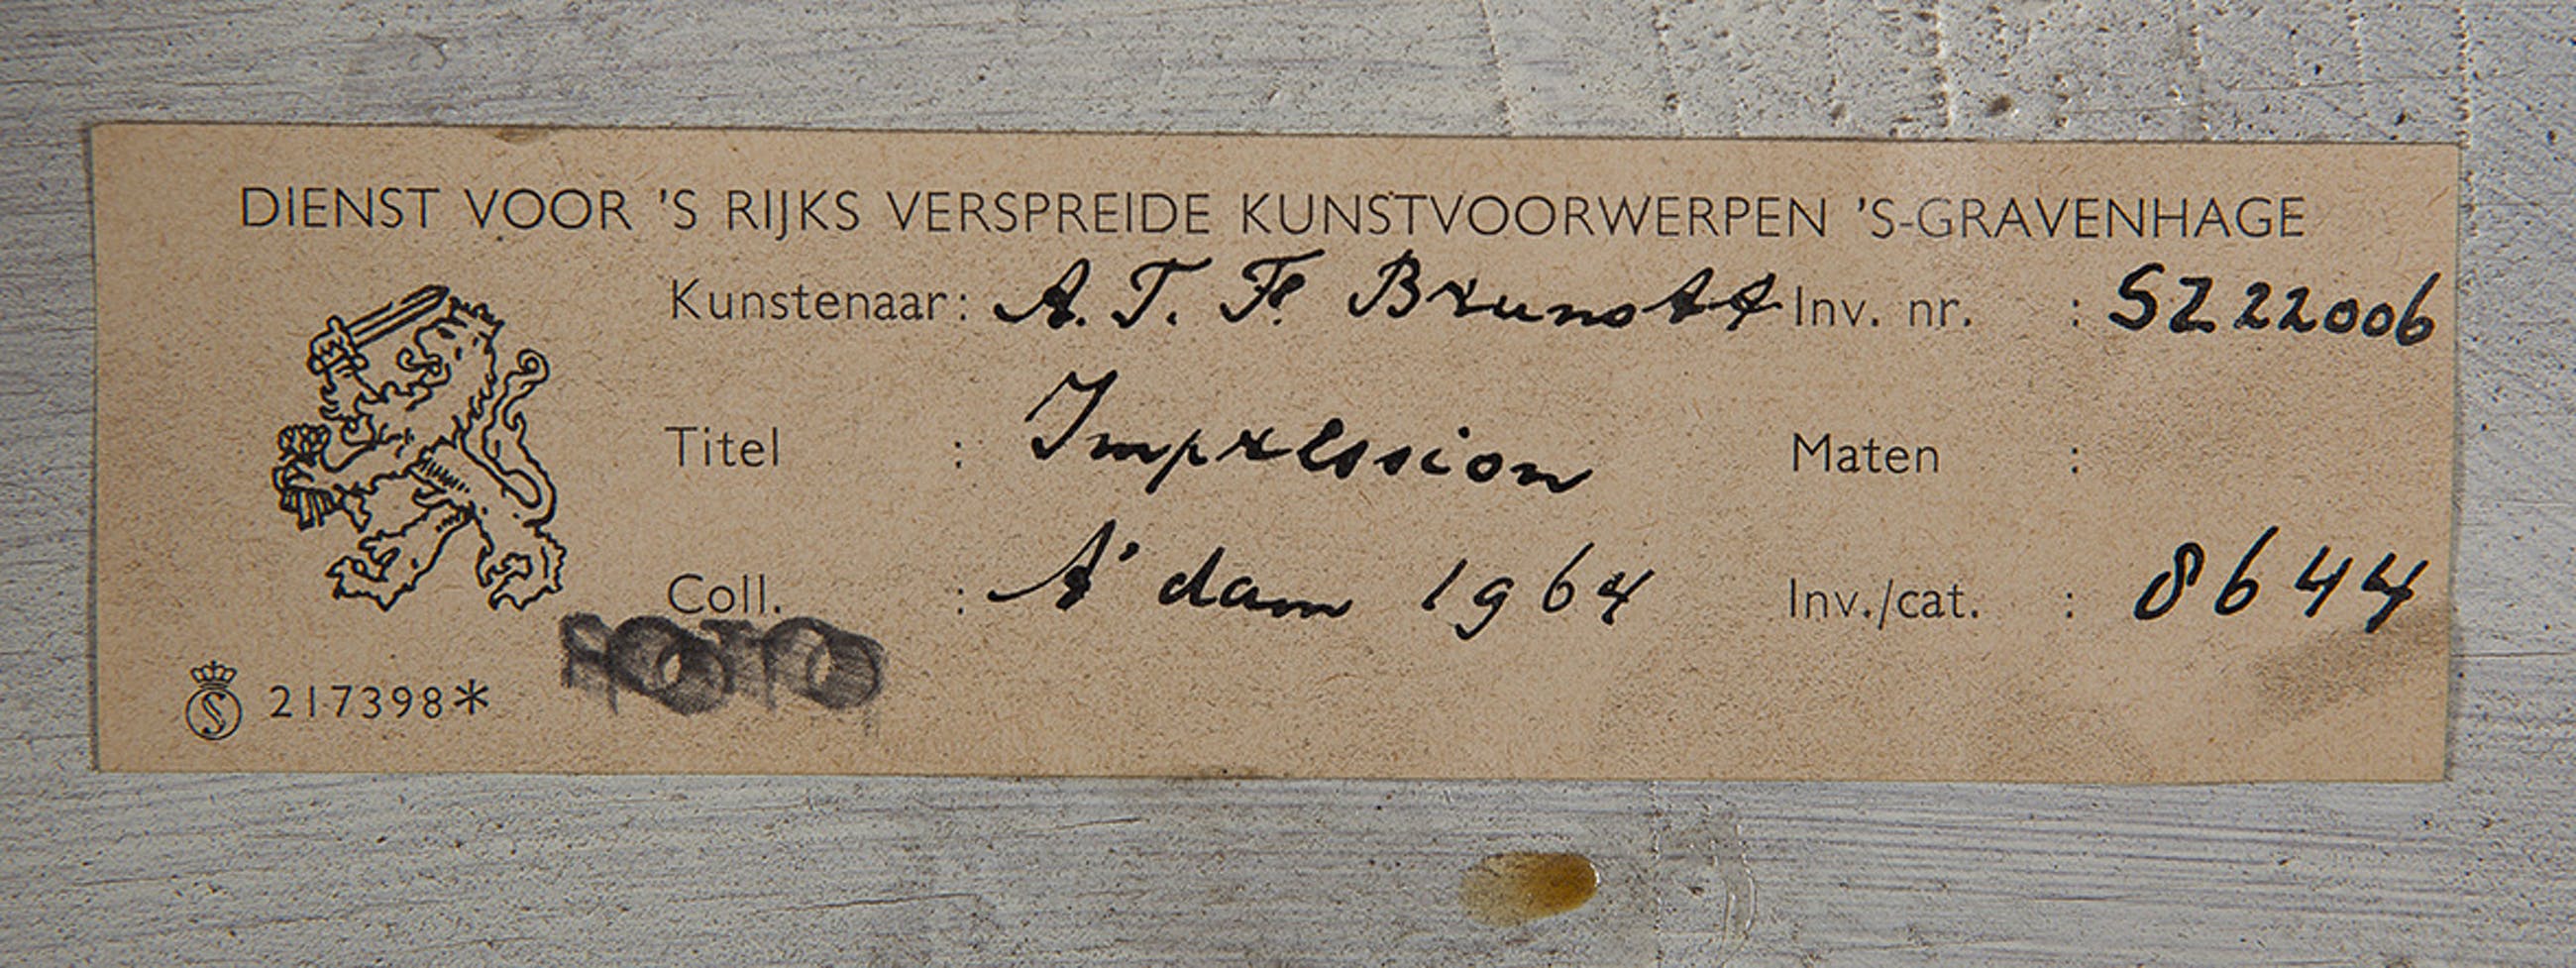 DIENST VOOR 'S RIJKS VERSPREIDE KUNSTVOORWERPEN 'S-GRAVENHAGE
Kunstenaar: A. T. F. Brunott Inv. nr. : SZ22006
Titel : Impression Maten :
Coll. : A'dam 1964 Inv./cat. : 8644
FOTO
S 217398*